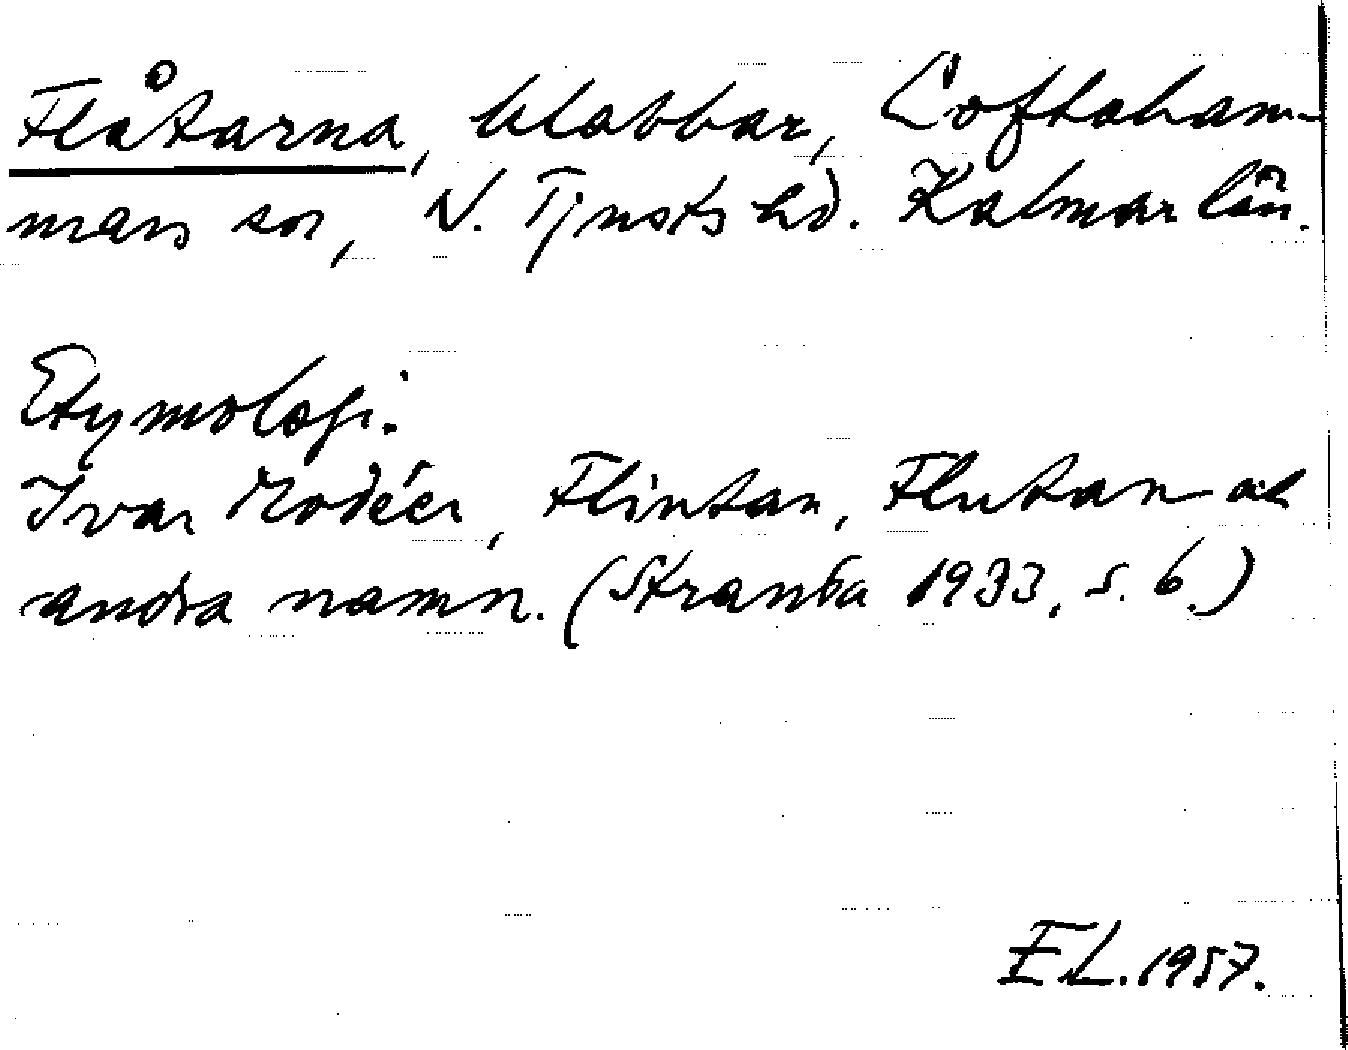 Flåtarna, klabbar, Loftaham-
mars sn, N. Tjusts hd. Kalmar län.
Etymologi.
Ivar Modéer, Flintan, Flutan och
andra namn. (Stranda 1933, s. 6.)
E L. 1957.